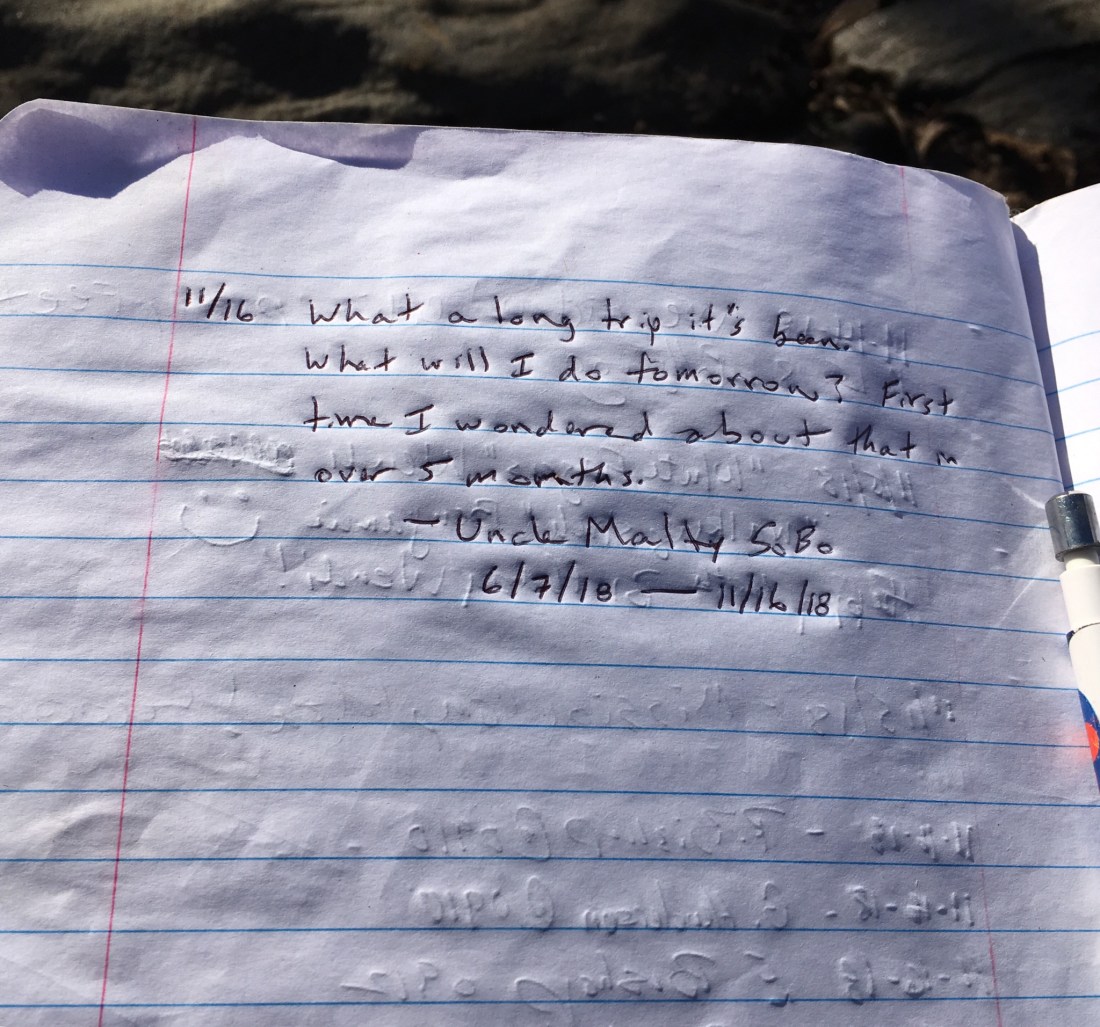 11/16 What a long trip it's been.
What will I do tomorrow? First
time I wondered about that in
over 5 months.
— Uncle Malty SoBo
6/7/18 — 11/16/18